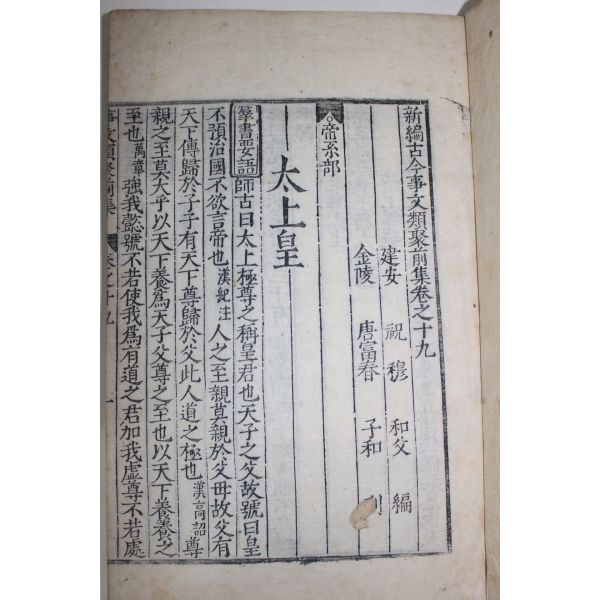 新編古今事文類聚前集卷之十九
建安 祝穆 和父 編
金陵 唐富春 子和 刊
帝系部
太上皇
羣書要語 師古曰太上極尊之稱皇君也天子之父故號曰皇
不預治國不欲言帝也漢紀注人之至親莫親於父母故父有
天下傳歸於子子有天下尊歸於父此人道之極也漢高詔尊
親之至莫大乎以天下養爲天子父尊之至也以天下養養之
至也萬章強我懿號不若使我爲有道之君加我虛尊不若處
事文類聚前集 卷之十九 一